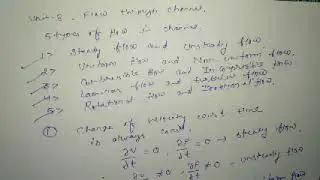 Unit-3. Flow through channel.
5 types of flow in channel
1> Steady flow and Unsteady flow
2> Uniform flow and Non-uniform flow.
3> Compressible flow and Incompressible flow.
4> Laminar flow and turbulent flow
5> Rotational flow and Irrotational flow.
① Change of velocity w.r.t time
is always const.
∂V/∂t = 0 . ∂P/∂t = 0 → steady flow.
∂V/∂t ≠ 0 . ∂P/∂t ≠ 0 → unsteady flow
uniform flow